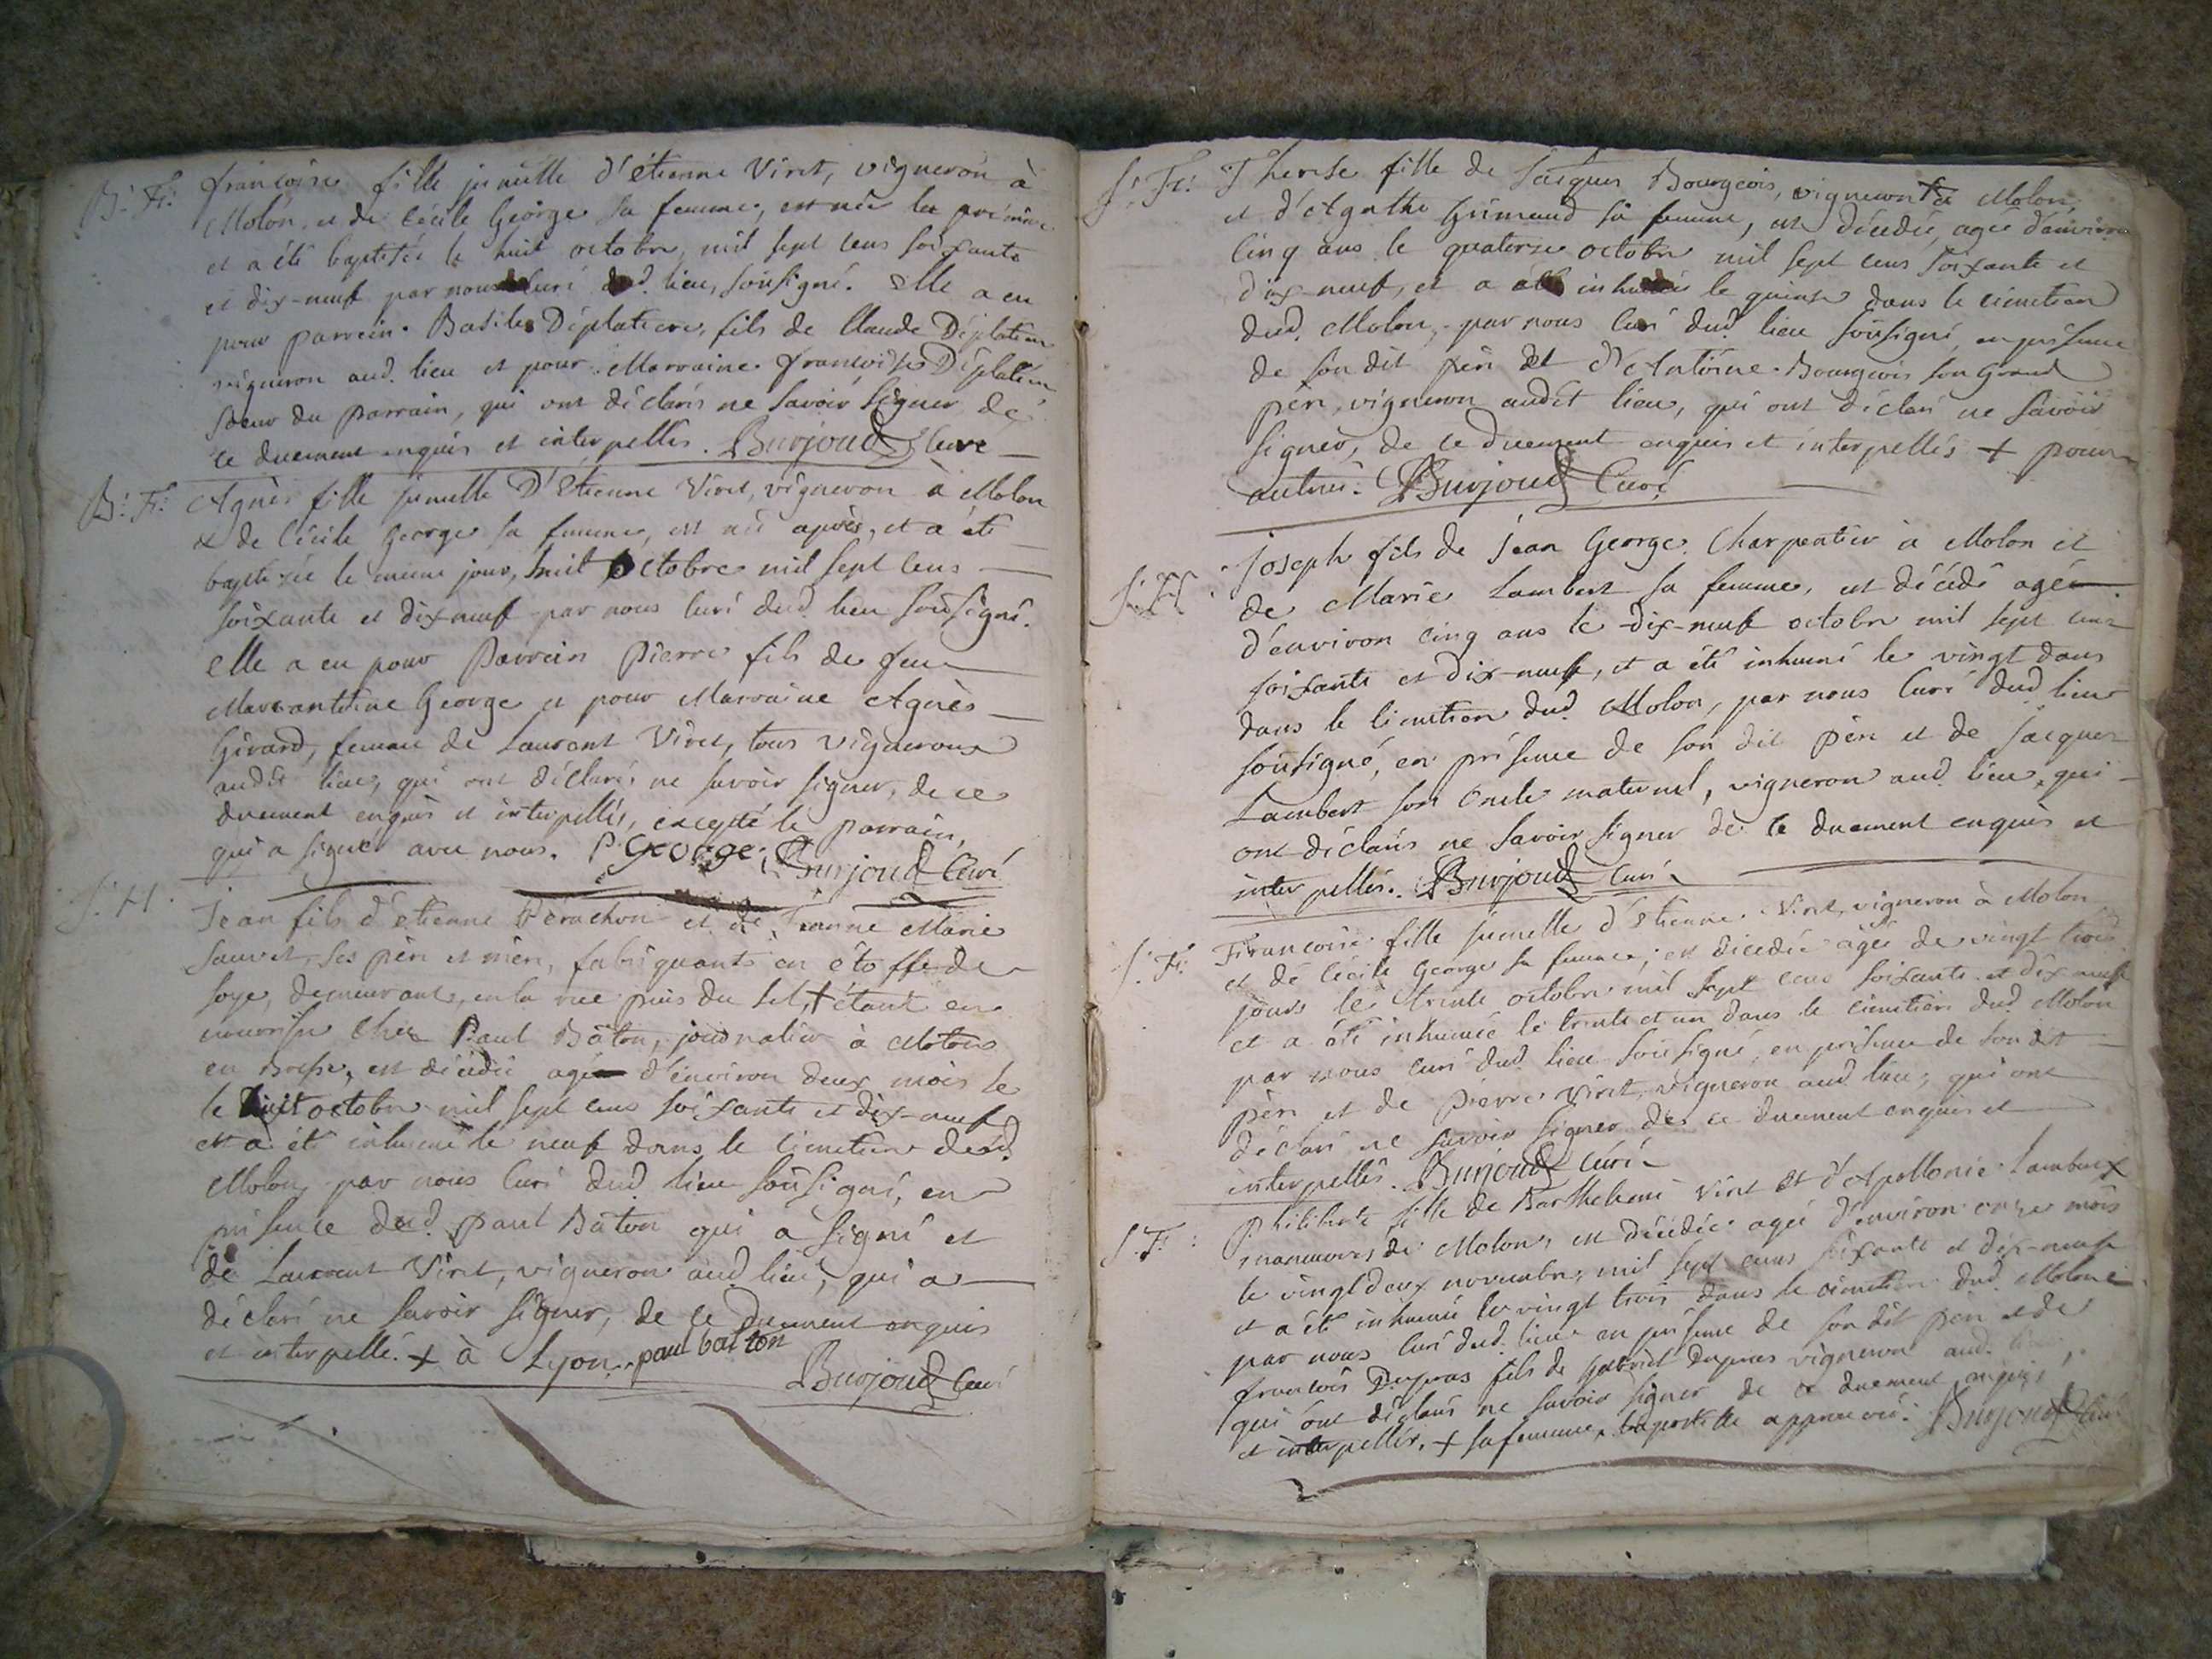 B: F: françoise fille jumelle d'étienne Viret, vigneron à
Molon, et de Cécile George sa femme, est née la première
et a été baptisée le huit octobre, mil sept cens soixante
et dix-neuf par nous Curé dud. lieu, soussigné. Elle a eu
pour parrein Basile Déplatiere, fils de Claude Déplatiere
vigneron aud. lieu et pour Marraine françoise Déplatiere
soeur du parrain, qui ont déclarés ne savoir signer de
ce duement enquis et interpellés. Burjoud Curé
B: F: Agnès fille jumelle D'Etienne Viret, vigneron à Molon
& de Cécile George sa femme, est née après, et a été
baptisée le même jour, huit Octobre mil sept cens
soixante et dix neuf par nous Curé dud. lieu soussigné.
elle a eu pour Parrein Pierre fils de feu
Marcantoine George et pour Marraine Agnès
Girard, femme de Laurent Viret, tous vignerons
audit lieu, qui ont déclarés ne savoir signer, de ce
duement enquis et interpellés, excepté le parrain,
qui a signé avec nous. P George. Burjoud Curé
S. H. Jean fils d'étienne Perachon et de Jeanne Marie
Sauvet, ses père et mère, fabriquants en étoffe de
soye, demeurants, en la rue puis du sel, + étant en
nourisse chez Paul Bâton, journalier à Molon
en Bresse, est décédé agé d'environ deux mois le
le huit octobre mil sept cens soixante et dix-neuf
et a été inhumé le neuf dans le Cimetiere dud.
Molon, par nous Curé dud. lieu soussigné, en
présence dud. paul Bâton qui a signé et
de Laurent Viret, vigneron aud. lieu, qui a
déclaré ne savoir signer, de ce duement enquis
et interpellé. + à Lyon. paul baton
Burjoud Curé
S: F: Therese fille de Jacques Bourgeois, vigneron à Molon,
et d'Agathe Grimaud sa femme, est décédée, agée d'environ
cinq ans le quatorze octobre mil sept cens soixante et
dix-neuf, et a été inhumée le quinze dans le cimetiere
dud. Molon, par nous Curé dud. lieu soussigné, en présence
de son dit père et d'Antoine Bourgeois son Grand
père, vigneron audit lieu, qui ont déclaré ne savoir
signer, de ce duement enquis et interpellés + pour
autrui. Burjoud Curé
S. H. Joseph fils de Jean George Charpentier à Molon et
de Marie Lambert sa femme, est décédé agé
d'environ cinq ans le dix-neuf octobre mil sept cens
soixante et dix-neuf, et a été inhumé le vingt dans
dans le Cimetiere dud. Molon, par nous Curé dud. lieu
soussigné, en présence de son dit père et de Jacques
Lambert son Oncle maternel, vigneron aud. lieu, qui
ont déclarés ne savoir signer de ce duement enquis et
interpellés. Burjoud Curé
S. F: Françoise fille jumelle d'Etienne Viret, vigneron à Molon
et de Cécile George sa femme, est décédée agée de vingt trois
jours le trente octobre mil sept cens soixante et dix neuf
et a été inhumée le trente et un dans le cimetiere dud. Molon
par nous Curé dud. lieu soussigné, en présence de son dit
père et de Pierre Viret, vigneron aud. lieu, qui ont
déclaré ne savoir signer de ce duement enquis et
interpellés. Burjoud Curé
S. F: Philiberte fille de Barthelemi Viret et d'Apollonie Lambert X
manoeuvres de Molon, est décédée agée d'environ onze mois
le vingt deux novembre, mil sept cens soixante et dix-neuf
et a été inhumée le vingt trois dans le cimetiere dud. Molon
par nous Curé dud. lieu en présence de son dit père et de
françois Dupras fils de Gabriel Dupras vigneron aud. lieu,
qui ont déclarés ne savoir signer de ce duement enquis
et interpellés. + sa femme, apostille approuvée. Burjoud Curé